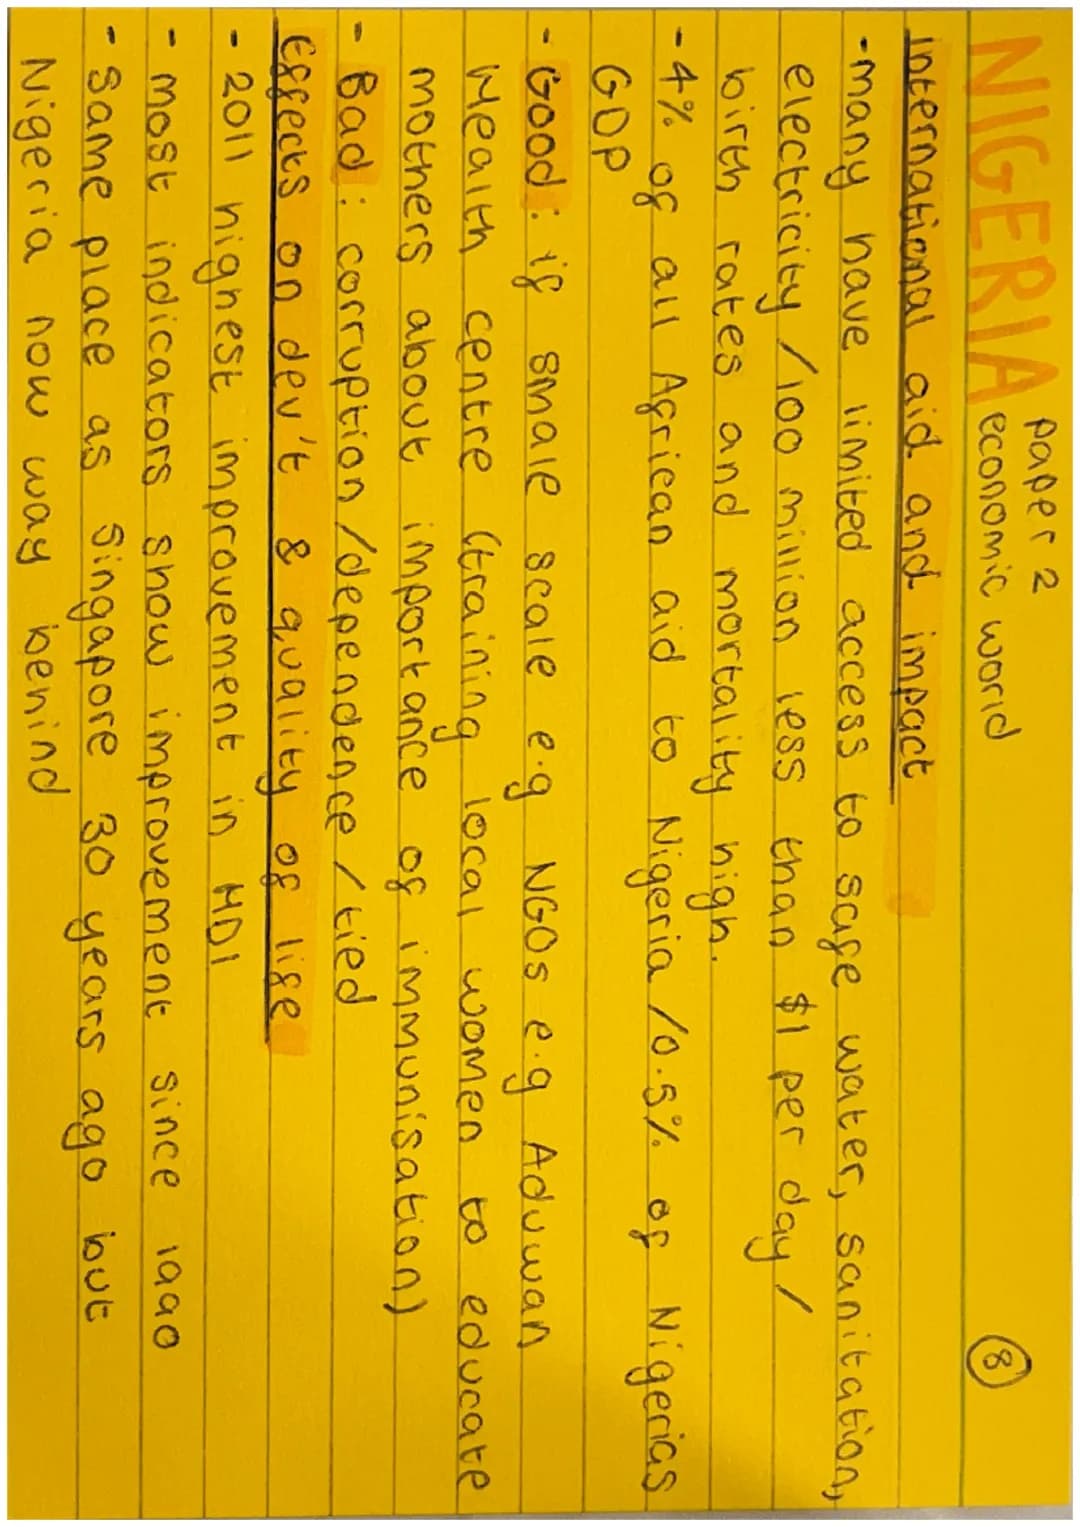 NIGERIA paper 2
economic world
8
International aid and impact
- many have limited access to safe water, sanitation,
electricity / 100 million less than $1 per day /
birth rates and mortality high.
- 4% of all African aid to Nigeria / 0.5% of Nigerias
GDP
- Good: if smale scale e.g NGOs e.g Aduwan
Health centre (training local women to educate
mothers about importance of immunisation)
- Bad: corruption / dependence / tied
Effects on dev't & quality of life
- 2011 highest improvement in HDI
- most indicators show improvement since 1990
- Same place as Singapore 30 years ago but
Nigeria now way behind